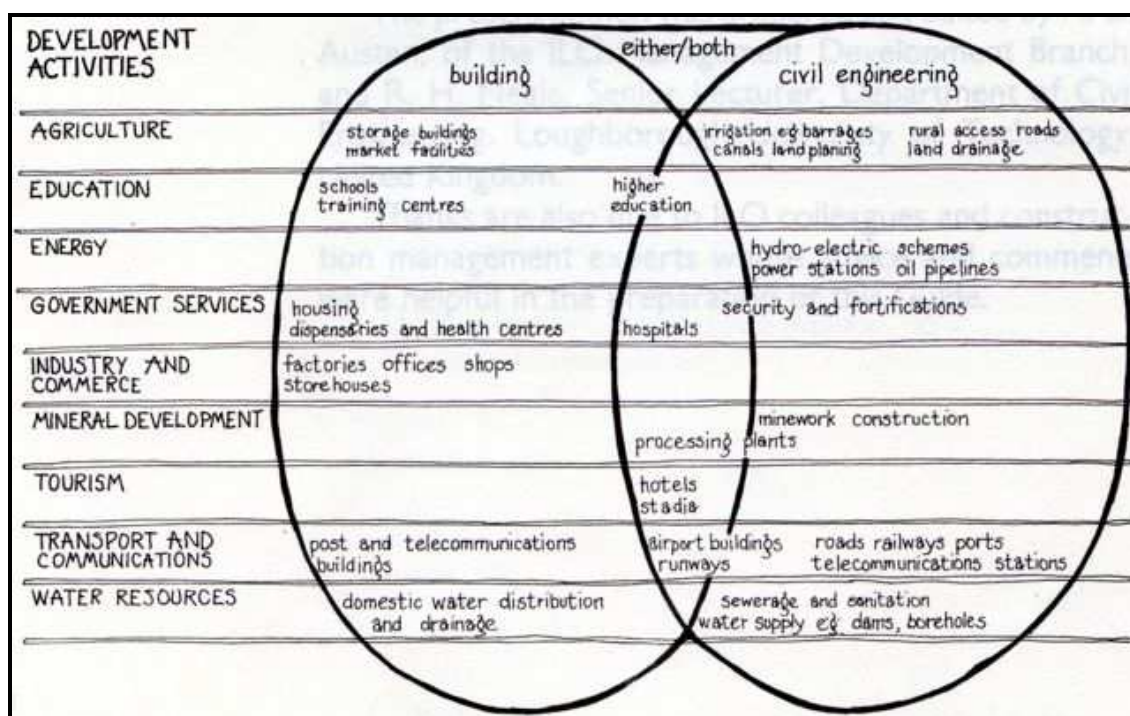 DEVELOPMENT
ACTIVITIES
building
either/both
civil engineering
AGRICULTURE
storage buildings
market facilities
irrigation eg barrages
canals land planing
rural access roads
land drainage
EDUCATION
schools
training centres
higher
education
ENERGY
hydro-electric schemes
power stations oil pipelines
GOVERNMENT SERVICES
housing
dispensaries and health centres
hospitals
security and fortifications
INDUSTRY AND
COMMERCE
factories offices shops
storehouses
MINERAL DEVELOPMENT
processing plants
minework construction
TOURISM
hotels
stadia
TRANSPORT AND
COMMUNICATIONS
post and telecommunications
buildings
airport buildings
runways
roads railways ports
telecommunications stations
WATER RESOURCES
domestic water distribution
and drainage
sewerage and sanitation
water supply eg. dams, boreholes
of the ILO Management Development Branch
and R. H. Senior Lecturer, Department of
Loughborough
Kingdom.
are also to ILO colleagues and
management experts
were helpful in the preparation of